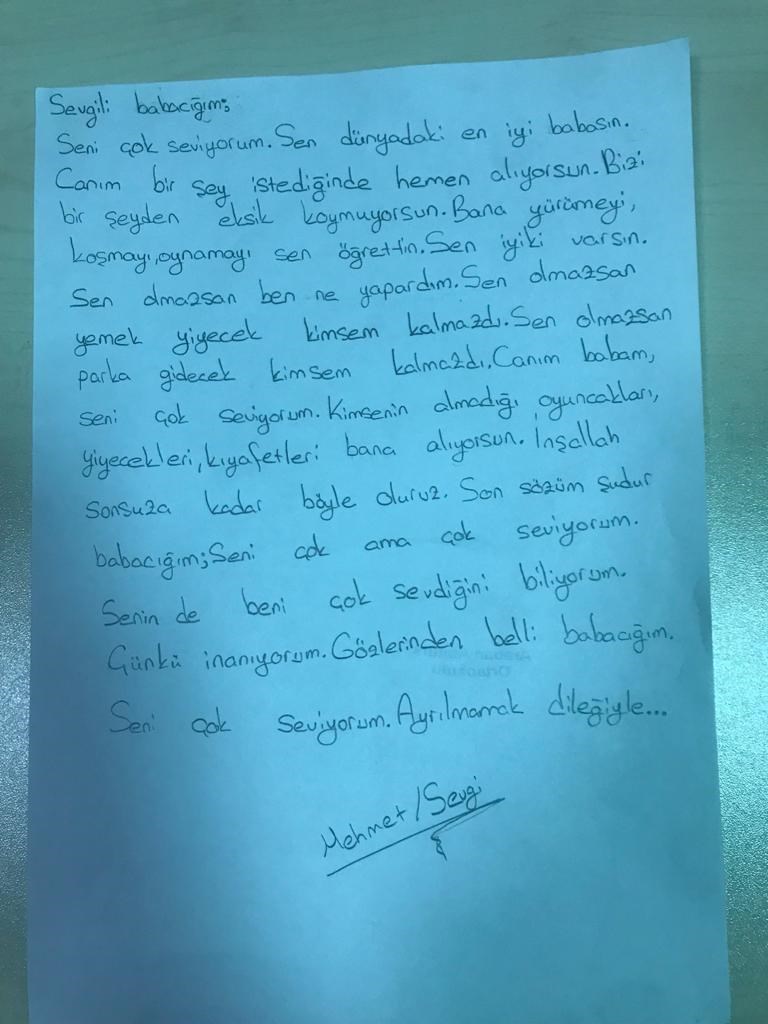 Sevgili babacığım;
Seni çok seviyorum. Sen dünyadaki en iyi babasın.
Canım bir şey istediğinde hemen alıyorsun. Bizi
bir şeyden eksik koymuyorsun. Bana yürümeyi,
koşmayı, oynamayı sen öğrettin. Sen iyiki varsın.
Sen olmazsan ben ne yapardım. Sen olmazsan
yemek yiyecek kimsem kalmazdı. Sen olmazsan
parka gidecek kimsem kalmazdı. Canım babam,
seni çok seviyorum. Kimsenin almadığı oyuncakları,
yiyecekleri, kıyafetleri bana alıyorsun. İnşallah
sonsuza kadar böyle oluruz. Son sözüm şudur
babacığım; Seni çok ama çok seviyorum.
Senin de beni çok sevdiğini biliyorum.
Çünkü inanıyorum. Gözlerinden belli babacığım.
Seni çok seviyorum. Ayrılmamak dileğiyle...
Mehmet/Sevgi